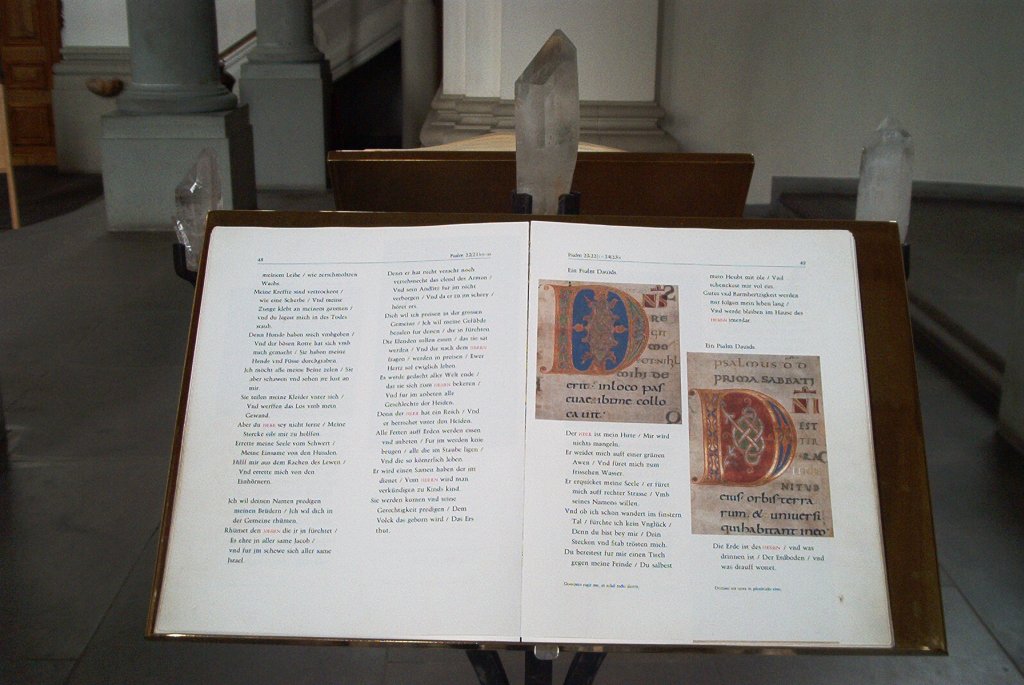 48
Psalm 22/21
meinem Leibe / wie zerschmoltzen
Wachs.
Meine Kreffte sind vertrockent /
wie eine Scherbe / Vnd meine
Zunge klebt an meinem gaumen /
vnd du legest mich in des Todes
staub.
Denn Hunde haben mich vmbgeben /
Vnd der bösen Rotte hat sich vmb
mich gemacht / Sie haben meine
Hende vnd Füsse durchgraben.
Ich möcht alle meine Beine zelen / Sie
aber schawen vnd sehen ire lust an
mir.
Sie teilen meine Kleider vnter sich /
Vnd werffen das Los vmb mein
Gewand.
Aber du HERR sey nicht ferne / Meine
Stercke eile mir zu helffen.
Errette meine Seele vom Schwert /
Meine Einsame von den Hunden.
Hilff mir aus dem Rachen des Lewen /
Vnd errette mich von den
Einhörnern.
Ich wil deinen Namen predigen
meinen Brüdern / Ich wil dich in
der Gemeine rhümen.
Rhümet den HERRN die ir in fürchtet /
Es ehre in aller same Jacob /
vnd fur im schewe sich aller same
Israel.
Denn er hat nicht veracht noch
verschmecht das elend des Armen /
Vnd sein Andlitz fur im nicht
verborgen / Vnd da er zu im schrey /
höret ers.
Dich wil ich preisen in der grossen
Gemeine / Ich wil meine Gelübde
bezalen fur denen / die in fürchten.
Die Elenden sollen essen / das sie sat
werden / Vnd die nach dem HERRN
fragen / werden in preisen / Ewer
Hertz sol ewiglich leben.
Es werde gedacht aller Welt ende /
das sie sich zum HERRN bekeren /
Vnd fur im anbeten alle
Geschlechte der Heiden.
Denn der HERR hat ein Reich / Vnd
er herrschet vnter den Heiden.
Alle Fetten auff Erden werden essen
vnd anbeten / Fur im werden knie
beugen / alle die im Staube ligen /
Vnd die so kömerlich leben.
Er wird einen Samen haben der im
dienet / Vom HERRN wird man
verkündigen zu Kinds kind.
Sie werden komen vnd seine
Gerechtigkeit predigen / Dem
Volck das geborn wird / Das Ers
thut.
49
Ein Psalm Dauids.
erit. in loco pas
cuae. ibi me collo
cavit.
Der HERR ist mein Hirte / Mir wird
nichts mangeln.
Er weidet mich auff einer grünen
Awen / Vnd füret mich zum
frisschen Wasser.
Er erquicket meine Seele / er füret
mich auff rechter Strasse / Vmb
seines Namens willen.
Vnd ob ich schon wandert im finstern
Tal / fürchte ich kein Vnglück /
Denn du bist bey mir / Dein
Stecken vnd Stab trösten mich.
Du bereitest fur mir einen Tisch
gegen meine Feinde / Du salbest
mein Heubt mit öle / Vnd
schenckest mir vol ein.
Gutes vnd Barmhertzigkeit werden
mir folgen mein leben lang /
Vnd werde bleiben im Hause des
HERRN imerdar.
Ein Psalm Dauids.
PSALMUS DD
PRIMA SABBATI
D
EST
NITUD
eius orbis terra
rum. & universi
qui habitant in eo
Die Erde ist des HERRN / vnd was
drinnen ist / Der Erdboden / vnd
was drauff wonet.